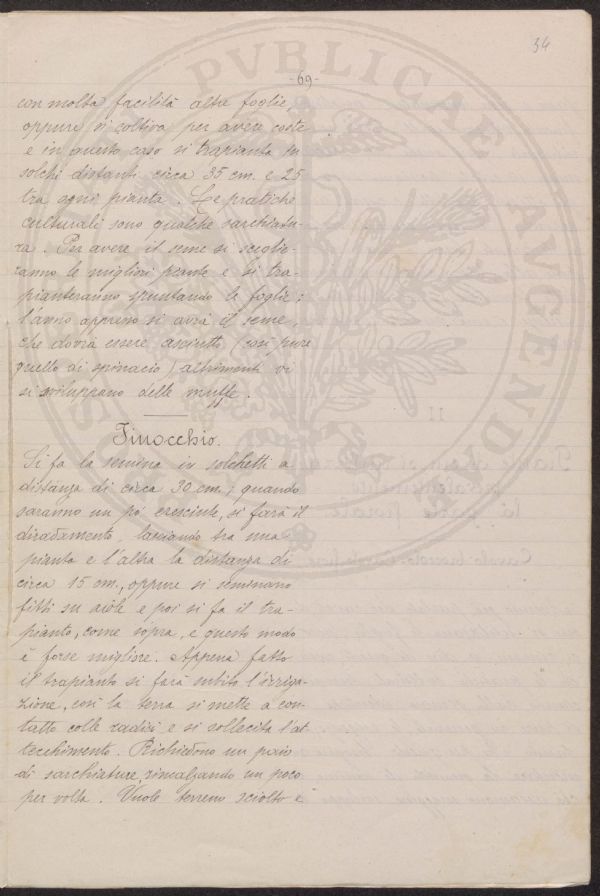 34
-69-
con molta facilità altre foglie,
oppure si coltiva per avere coste
e in questo caso si trapianta in
solchi distanti circa 35 cm. e 25
tra ogni pianta. Le pratiche
culturali sono qualche sarchiatu-
ra. Per avere il seme si sceglie-
ranno le migliori piante e si tra-
pianteranno spuntando le foglie;
l'anno appresso si avrà il seme,
che dovrà essere asciutto (così pure
quello di spinacio) altrimenti vi
si sviluppano delle muffe.
Finocchio.
Si fa la semina in solchetti a
distanza di circa 30 cm.; quando
saranno un po' cresciute, si farà il
diradamento, lasciando tra una
pianta e l'altra la distanza di
circa 15 cm., oppure si seminano
fitti su aiole e poi si fa il tra-
pianto, come sopra, e questo modo
è forse migliore. Appena fatto
il trapianto si farà subito l'irriga-
zione, così la terra si mette a con-
tatto colle radici e si sollecita l'at
tecchimento. Richiedono un paio
di sarchiature, rincalzando un poco
per volta. Vuole terreno sciolto e
PVBLICAE
AVGENDAE